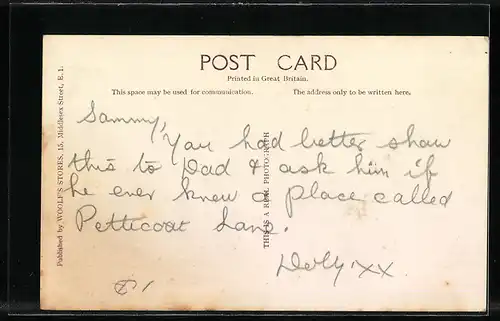 POST CARD
Printed in Great Britain.
This space may be used for communication.
The address only to be written here.
Published by WOOLF'S STORES, 15, Middlesex Street, E. 1.
THIS IS A REAL PHOTOGRAPH
Sammy,
You had better show
this to Dad & ask him if
he ever knew a place called
Petticoat Lane.
Dolly xx